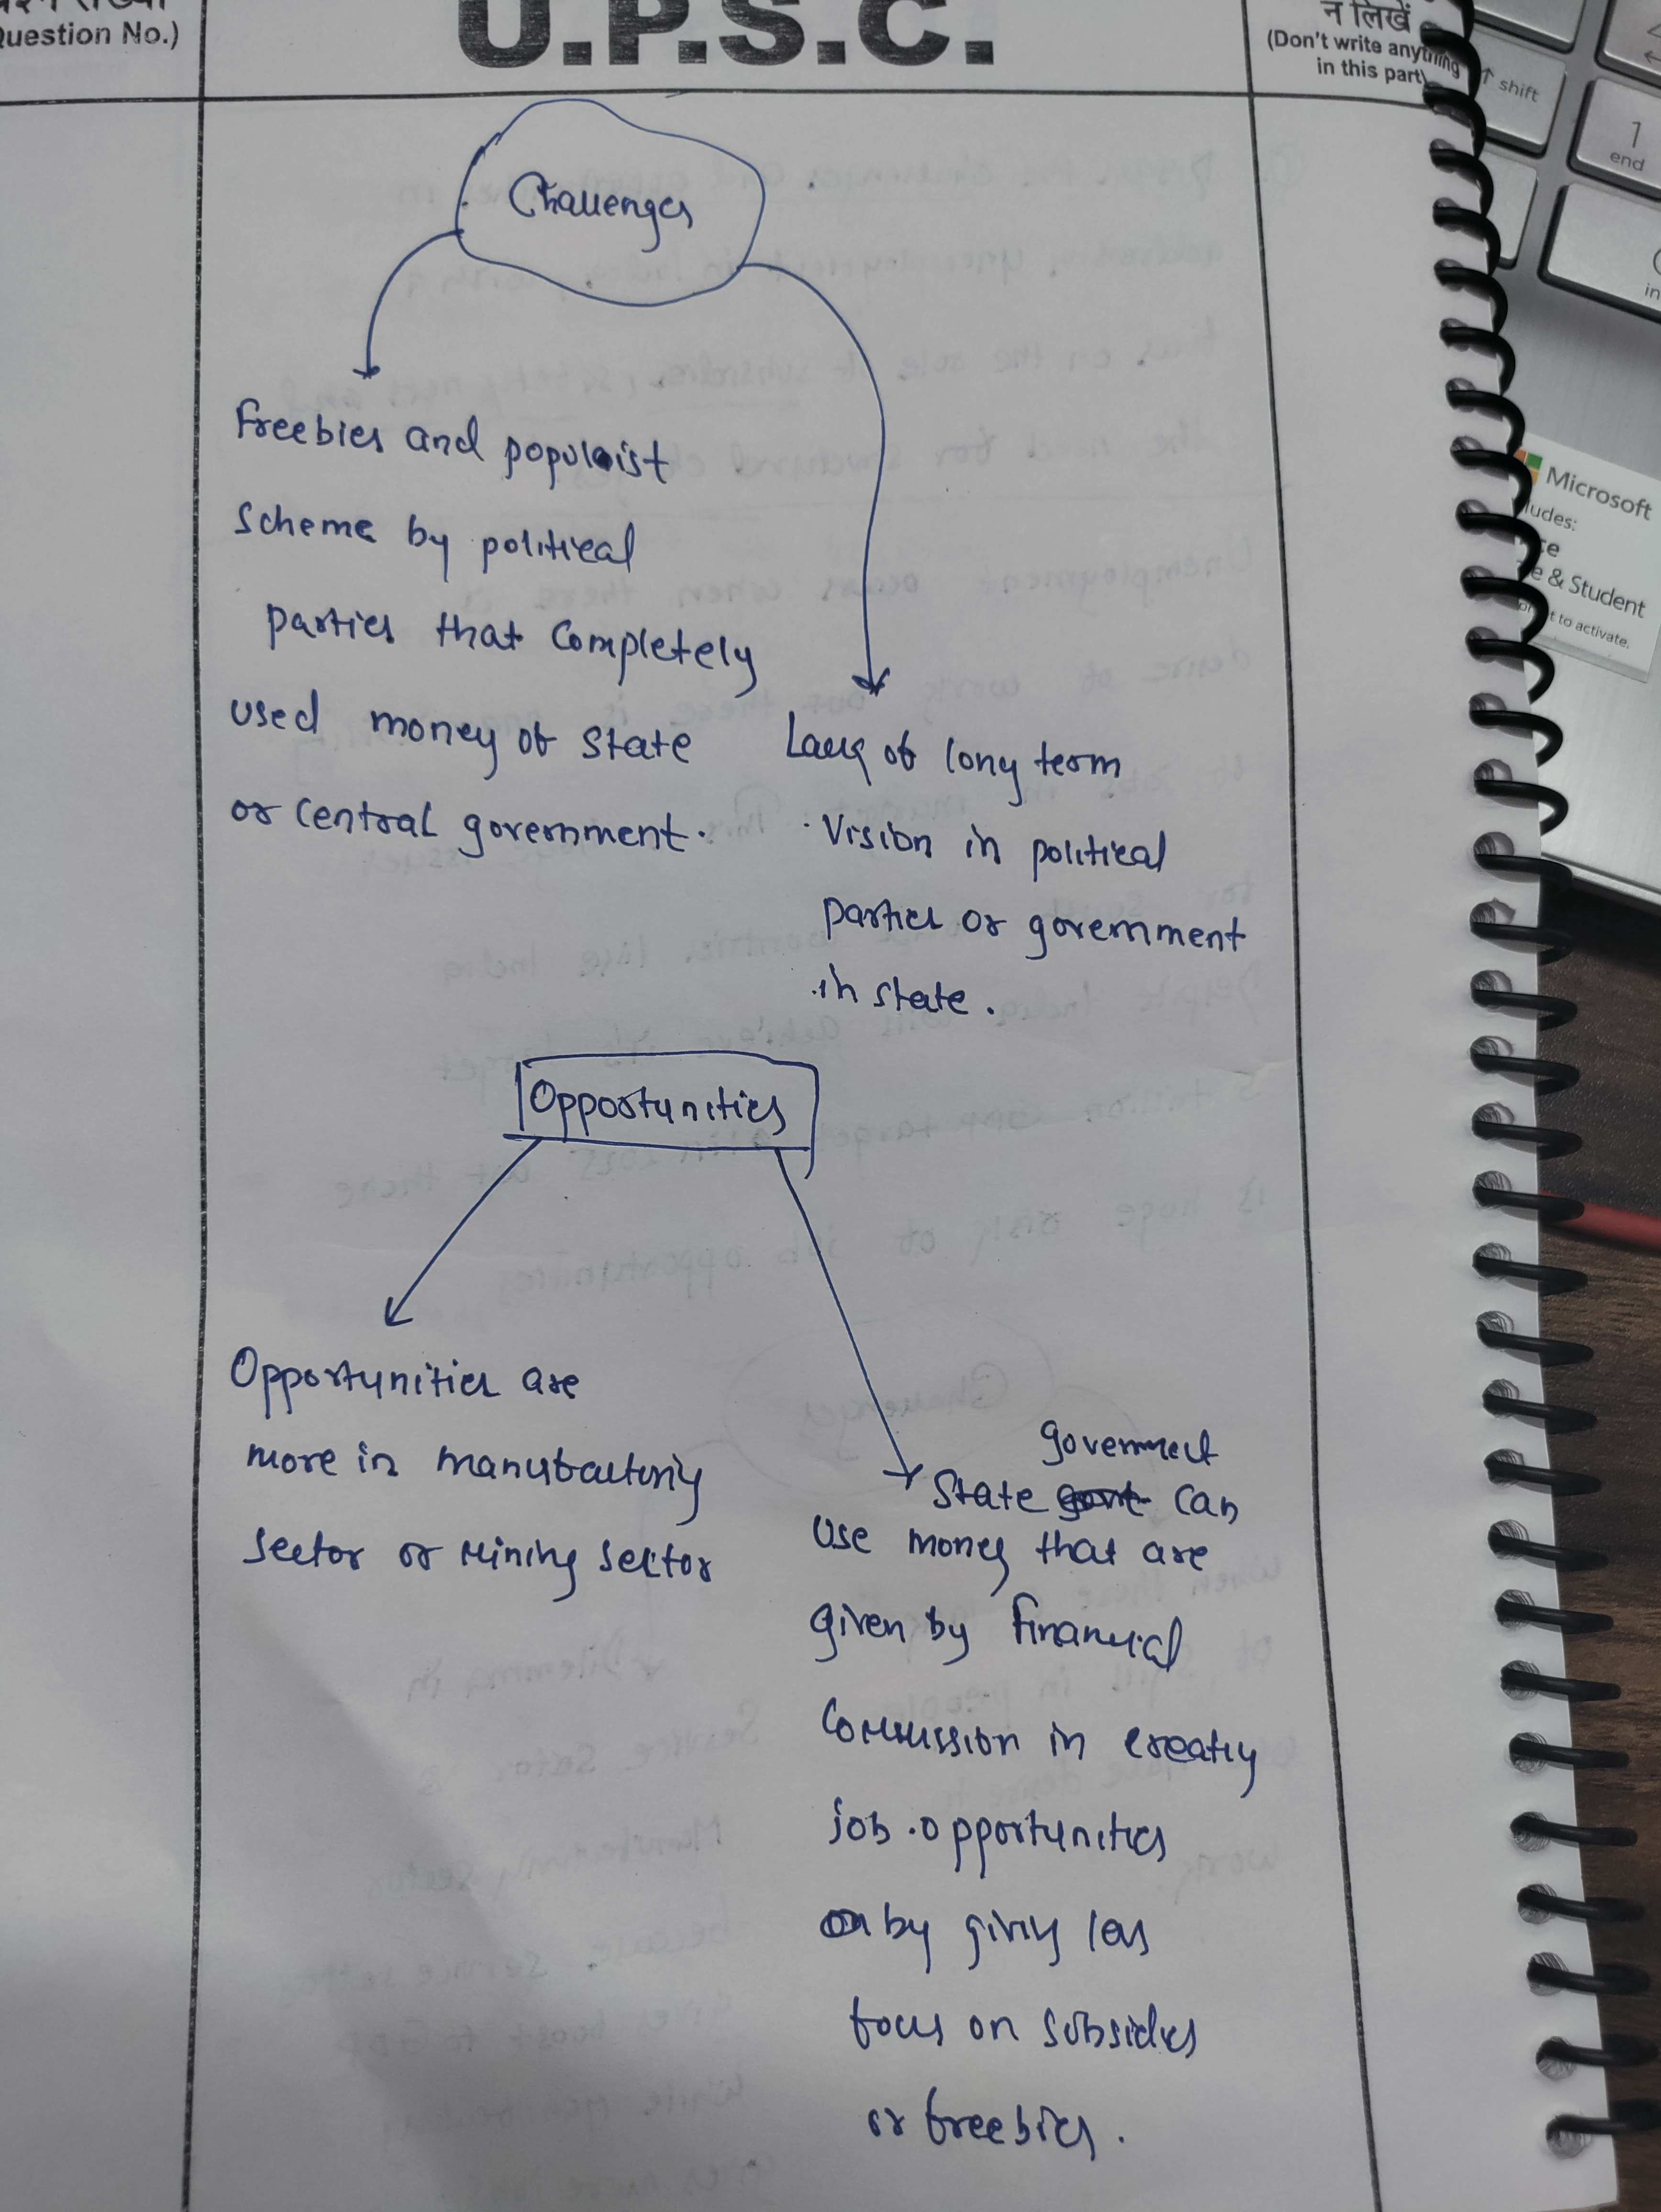 (Question No.)
U.P.S.C.
न लिखें
(Don't write anything
in this part)
Challenges
Freebies and populist
scheme by political
parties that completely
used money of state
or central government.
Lack of long term
Vision in political
parties or government
in state.
Opportunities
Opportunities are
more in manufacturing
sector or Mining sector
government
State govt can
use money that are
given by financial
Commission in creating
job opportunities
by giving less
focus on subsidies
or freebies.
shift
1
end
Microsoft
& Student
to activate.